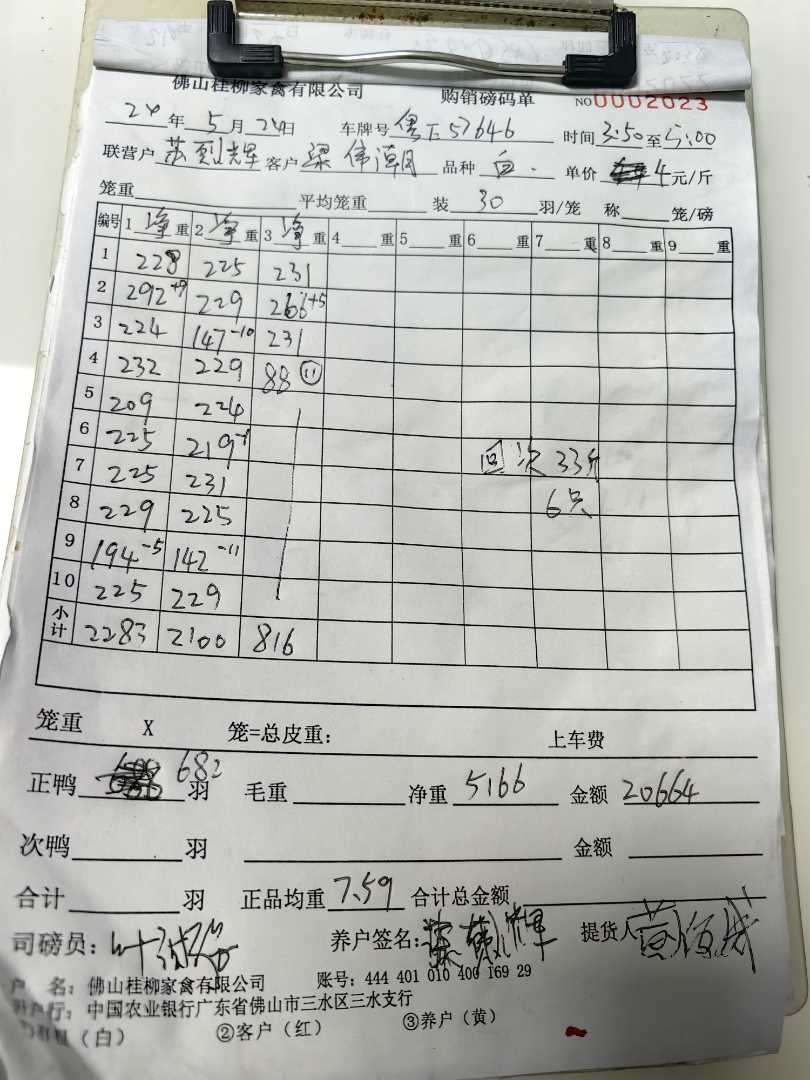 佛山桂柳家禽有限公司 购销磅码单 NO0002023
24年5月24日 车牌号 粤E57646 时间3:50至5:00
联营户 苏烈辉 客户 梁伟潮 品种 白. 单价 4元/斤
笼重 平均笼重 装 30 羽/笼 称 笼/磅
编号 1 净 重 2 净 重 3 净 重 4 重 5 重 6 重 7 重 8 重 9 重
1 228 225 231
2 292+9 229 266+5
3 224 147-10 231
4 232 229 88 11
5 209 224
6 225 219-1 回次 33斤
7 225 231 6只
8 229 225
9 194-5 142-11
10 225 229
小计 2283 2100 816
笼重 X 笼=总皮重: 上车费
正鸭 682 羽 毛重 净重 5166 金额 20664
次鸭 羽 金额
合计 羽 正品均重 7.59 合计总金额
司磅员: 叶 养户签名: 苏烈辉 提货人
户 名: 佛山桂柳家禽有限公司 账号: 444 401 010 400 169 29
户行: 中国农业银行广东省佛山市三水区三水支行
(白) ②客户(红) ③养户(黄)